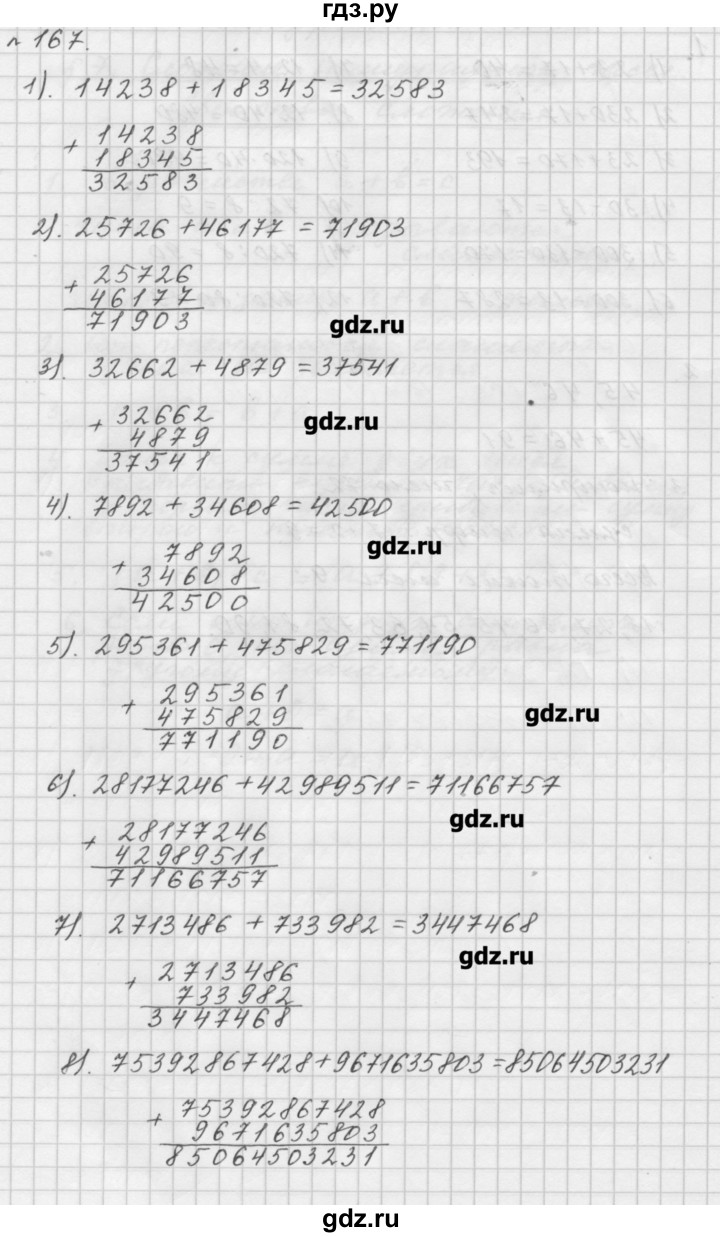 гдз.ру
№ 167.
1). 14238 + 18345 = 32583
+ 14238
18345
32583
2). 25726 + 46177 = 71903
+ 25726
46177
71903
gdz.ru
3). 32662 + 4879 = 37541
+ 32662
4879
37541
gdz.ru
4). 7892 + 34608 = 42500
+ 7892
34608
42500
gdz.ru
5). 295361 + 475829 = 771190
+ 295361
475829
771190
gdz.ru
6). 28177246 + 42989511 = 71166757
gdz.ru
+ 28177246
42989511
71166757
7). 2713486 + 733982 = 3447468
gdz.ru
+ 2713486
733982
3447468
8). 75392867428 + 9671635803 = 85064503231
+ 75392867428
9671635803
85064503231
gdz.ru